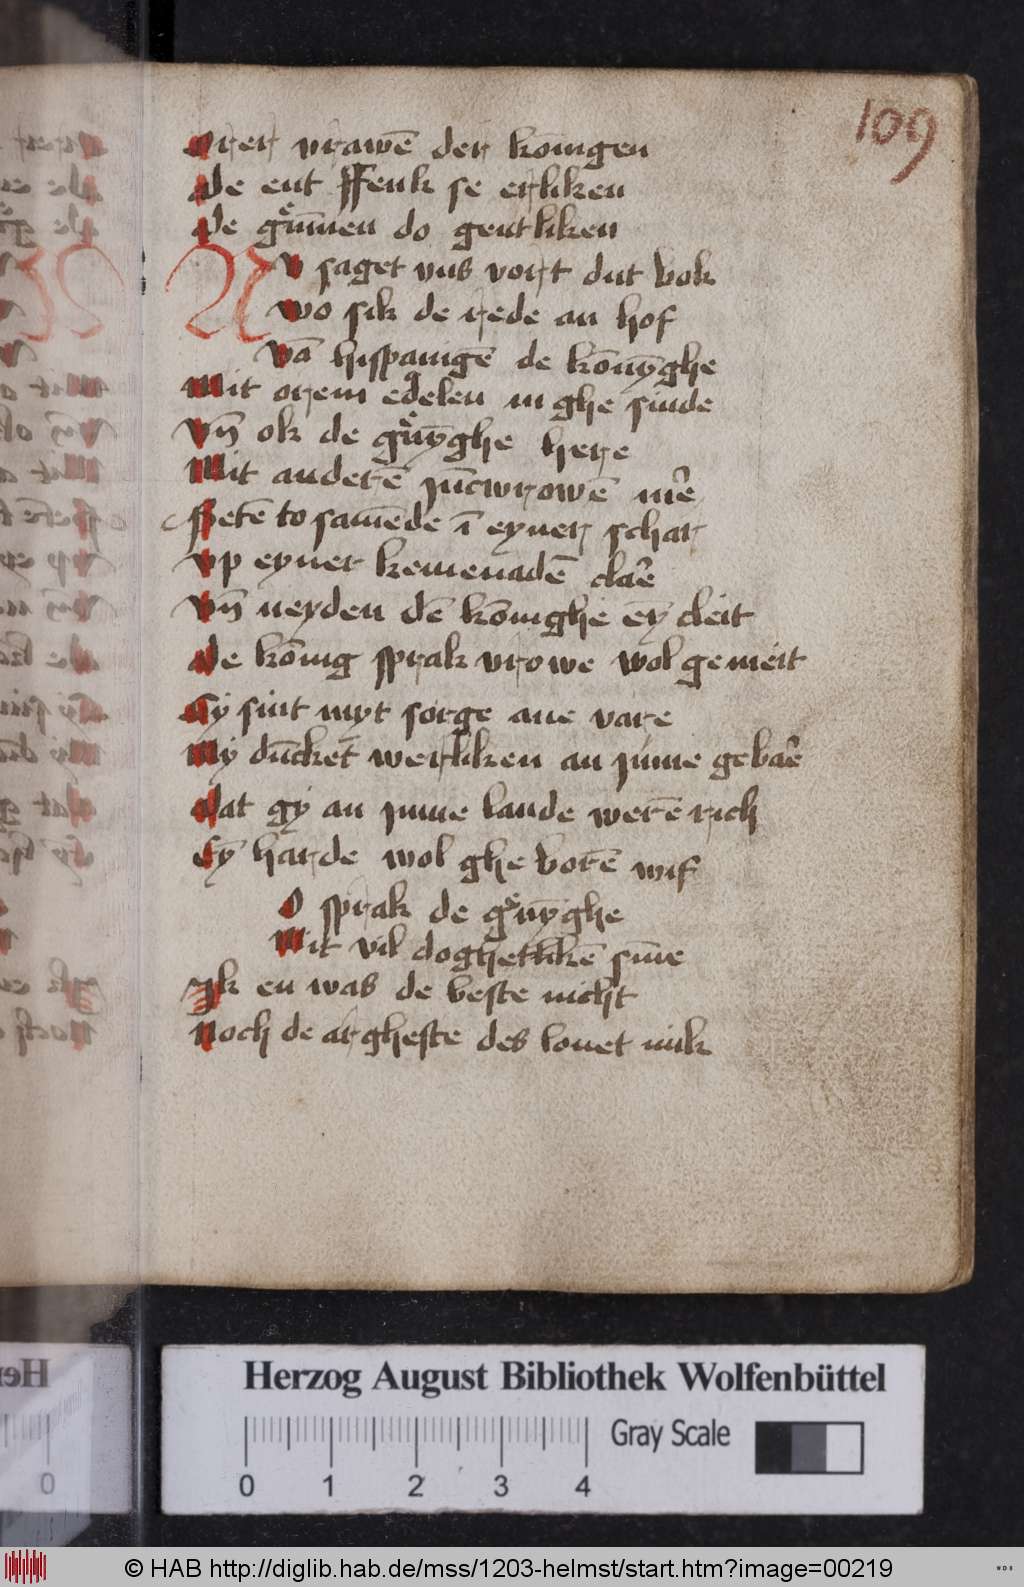 109
Orer vrawē der kōnigen
De ent ffenk se erliken
De gͤūnnen do gentliken
NV saget vns vort dut bok
Wo sik de rede an hof
Vā hispanigē de kōnȳghe
Mit orem edelen in ghe sinde
Vn̄ ok de gͤūnȳghe here
Mit anderē jūcwrowē mer̄
Setē to samēde ī eyner schar
Vp eyner kemenadē clar̄
Vn̄ neyden dē kōnighe ēy cleit
De kōnig sprak vrowe wol gemeit
Gy sint myt sorge ane vare
My dūcket werliken an juwe gebar̄
Dat gy an juwe lande werē rich
Eȳ harde wol ghe borē wif
O sprak de gͤūnȳghe
Mit vil doghetlikē sīne
Jk en was de beste nicht
Noch de argheste des louet mik
Herzog August Bibliothek Wolfenbüttel
Gray Scale
0 1 2 3 4
0
© HAB http://diglib.hab.de/mss/1203-helmst/start.htm?image=00219